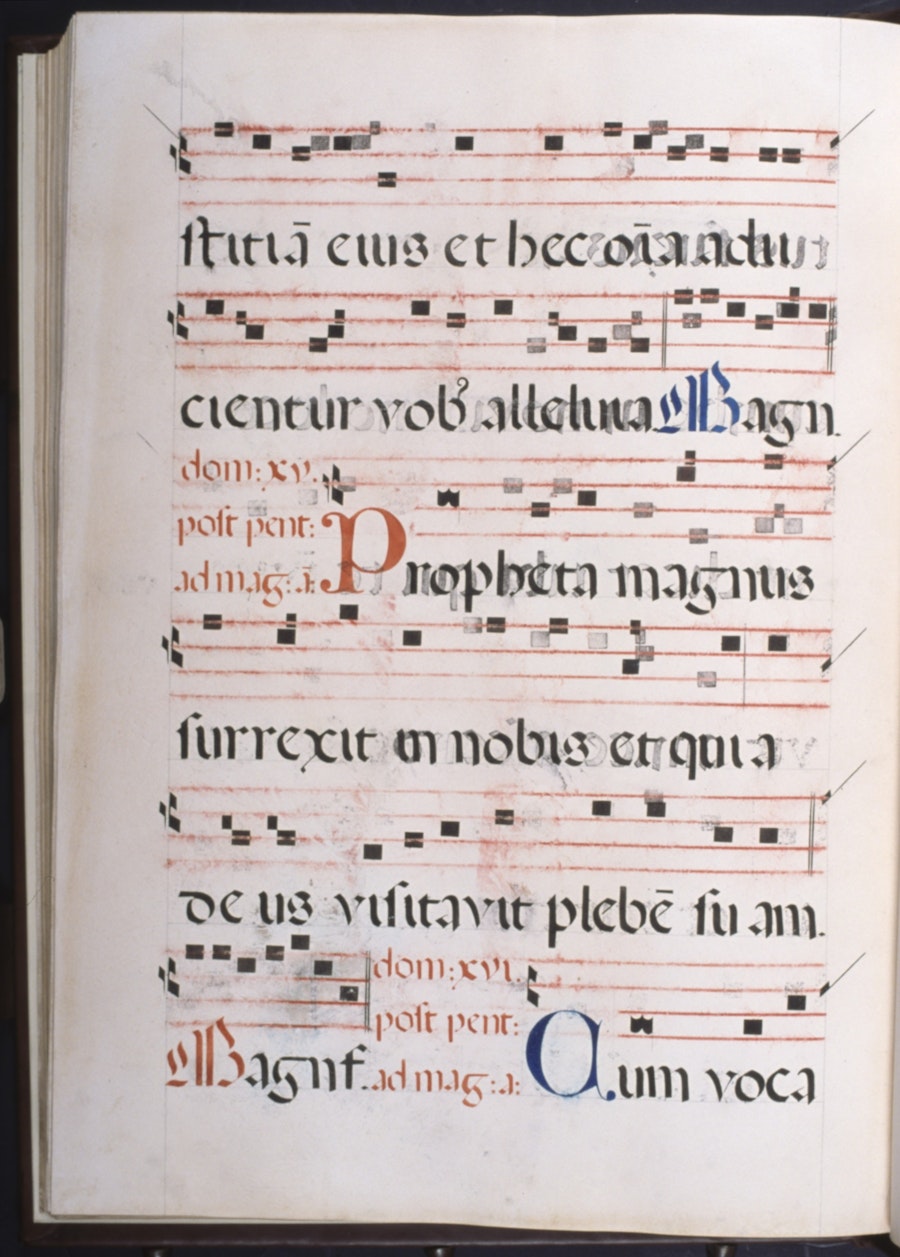 ſtitiā eius et hec oīa adiu
cientur vobꝰ alleluia Magn.
dom: xv.
poſt pent:
ad mag: a: Propheta magnus
ſurrexit in nobis et quia
de us viſitavit plebē ſu am.
dom: xvi.
poſt pent:
Magnf. ad mag: a: Cum voca